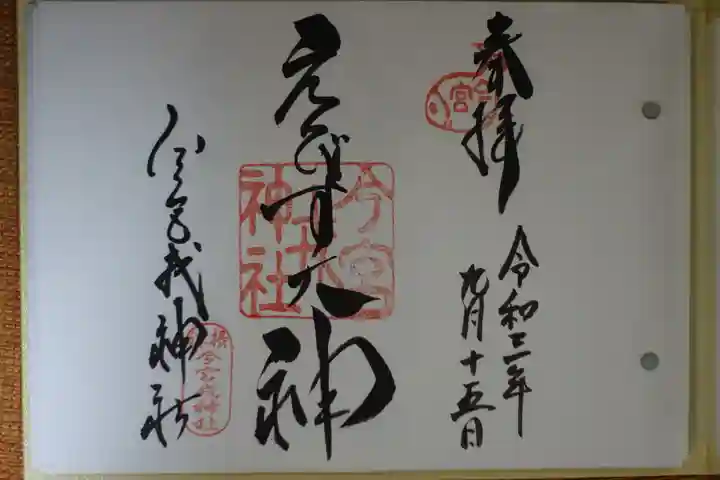 奉拝
令和三年
九月十五日
えびす大神
今宮戎神社
今宮戎
神社
今宮
摂
今宮戎神社